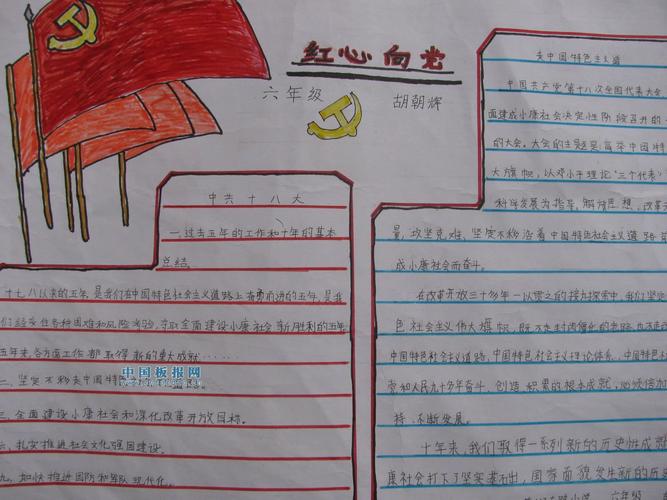 红心向党
六年级 胡朝辉
中共十八大
一.过去五年的工作和十年的基本
总结。
十七八以来的五年,是我们在中国特色社会主义道路上奋勇前进的五年,是我
们经受住各种困难和风险考验,夺取全面建设小康社会新胜利的五年
五年来,各方面工作都取得新的重大成就……
二、坚定不移走中国特
三.全面建设小康社会和深化改革开放目标。
六、扎实推进社会文化强国建设。
九、加快推进国防和军队现代化。
中国板报网
走中国特色主义道
中国共产党第十八次全国代表大会
面建成小康社会决定性阶段召开的一
的大会。大会的主题是:高举中国特
大旗帜,以邓小平理论"三个代表"
科学发展为指导,解放思想,改革开
量,攻坚克难、坚定不移沿着中国特色社会主义道路
成小康社会而奋斗。
在改革开放三十多年一以贯之的接力探索中,我们坚定
色社会主义伟大旗帜,既不走封闭僵化的老路,也不
中国特色社会主义道路,中国特色社会主义理论体系、中国特色
党和人民九十多年奋斗、创造、积累的根本成就,必须倍加
持、不断发展。
十年来,我们取得一系列新的历史性成就
康社会打下了坚实基础,国家面貌发生新的历史
六年级